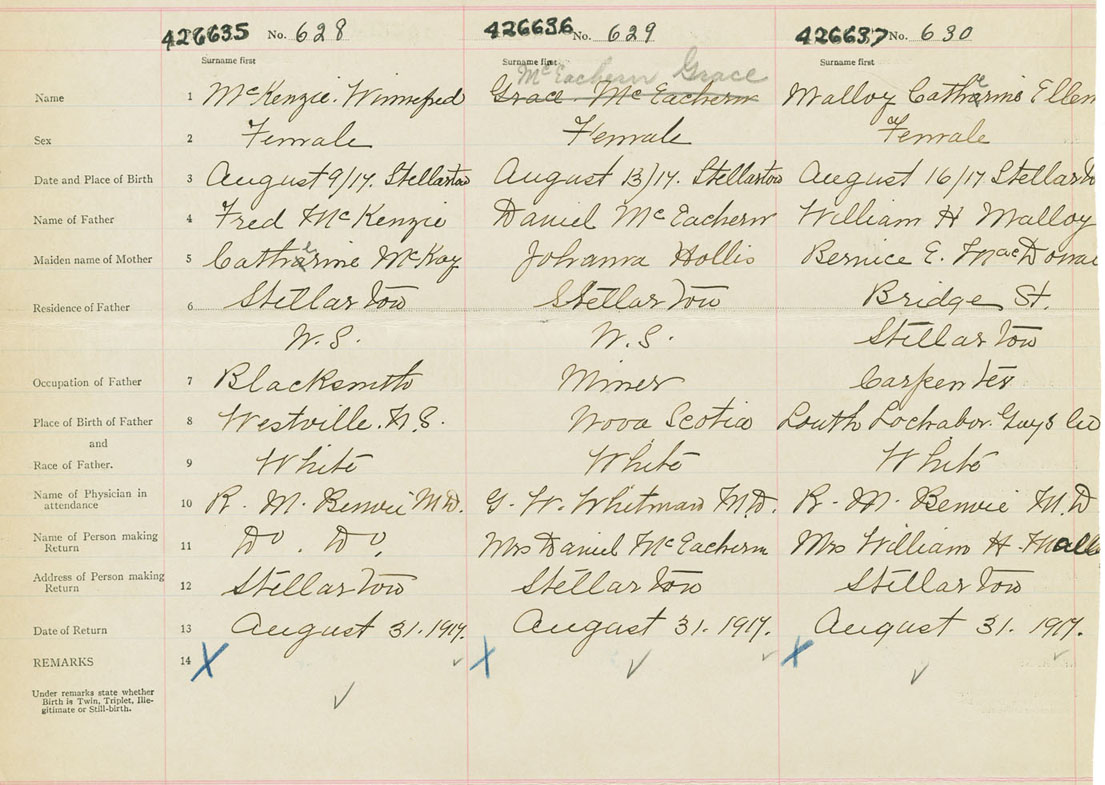 426635 No. 628 426636 No. 629 426637 No. 630
Surname first Surname first Surname first
McEachern Grace
Name 1 McKenzie. Winnefred Grace McEachern Malloy Catherine Ellen
Sex 2 Female Female Female
Date and Place of Birth 3 August 9/17. Stellarton August 13/17. Stellarton August 16/17 Stellarto
Name of Father 4 Fred McKenzie Daniel McEachern William H Malloy
Maiden name of Mother 5 Catherine McKay Johanna Hollis Bernice E. MacDonal
Residence of Father 6 Stellarton Stellarton Bridge St.
N.S. N.S. Stellarton
Occupation of Father 7 Blacksmith Miner Carpenter
Place of Birth of Father 8 Westville. N.S. Nova Scotia South Lochabor. Guys Co
and
Race of Father. 9 White White White
Name of Physician in
attendance 10 R. M. Benvie M.D. G. W. Whitman M.D. R. M. Benvie M.D
Name of Person making
Return 11 Do. Do. Mrs Daniel McEachern Mrs William H. Mall
Address of Person making
Return 12 Stellarton Stellarton Stellarton
Date of Return 13 August 31. 1917. August 31. 1917. August 31. 1917.
REMARKS 14 X X X
Under remarks state whether
Birth is Twin, Triplet, Ille-
gitimate or Still-birth.